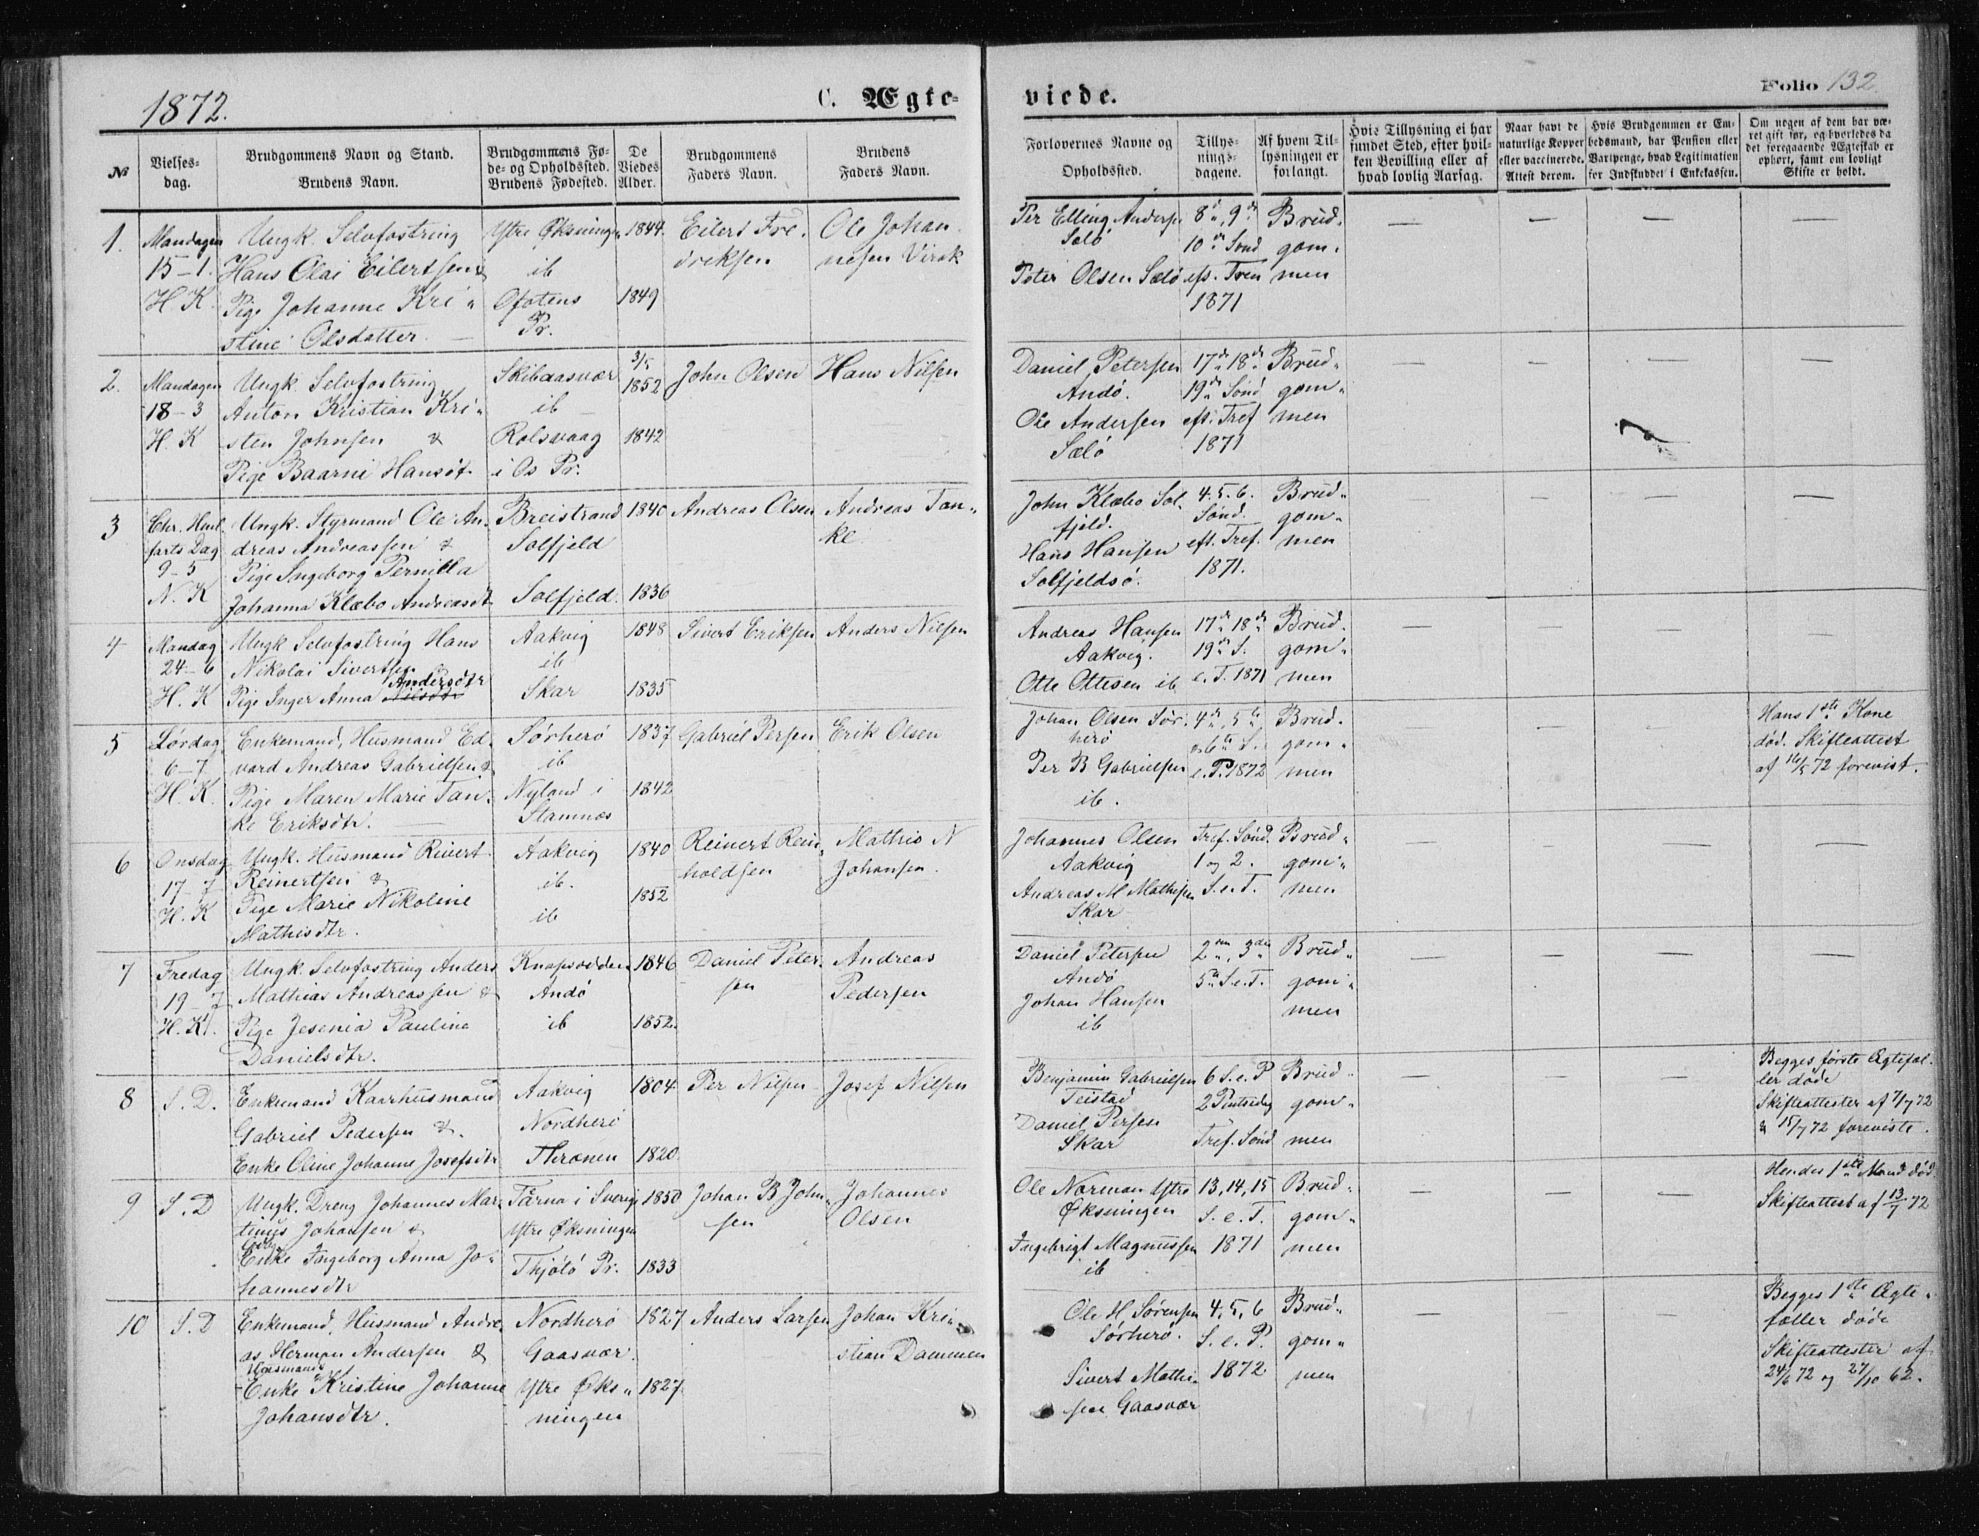 1872.
C. Ægte-
viede.
Folio 132
№
Vielses-
dag.
Brudgommens Navn og Stand.
Brudens Navn.
Brudgommens Fø-
de- og Opholdssted.
Brudens Fødested.
De
Viedes
Alder.
Brudgommens
Faders Navn.
Brudens
Faders Navn.
Forlovernes Navne og
Opholdssted.
Tillys-
nings-
dagene.
Af hvem Til-
lysningen er
forlangt.
Hvis Tillysning ei har
fundet Sted, efter hvil-
ken Bevilling eller af
hvad lovlig Aarsag.
Naar havt de
naturlige Kopper
eller vaccinerede.
Attest derom.
Hvis Brudgommen er Em-
bedsmand, har Pension eller
Vartpenge, hvad Legitimation
for Indskuddet i Enkekassen.
Om nogen af dem har væ-
ret gift før, og hvorledes da
det foregaaende Ægteskab er
ophørt, samt om lovligt
Skifte er holdt.
1.
Mandagen
15-1.
H. K.
Ungk. Selvfostring
Hans Olai Eilertsen &
Pige Johanne Kri-
stine Olsdatter.
Ytre Øksningen
ib
Ofotens
Pr.
1844.
1849
Eilert Fre-
driksen
Ole Johan-
nesen Virak
Per Elling Andersen
Sælø
Peter Olsen Sælø
8de, 9de
10de Sönd
eft. Tren
1871
Brud-
gom-
men
2.
Mandagen
18-3
H. K
Ungk. Selvfostring
Anton Kristian Kri-
sten Johnsen &
Pige Baarni Hansdt.
Skibaasvær
ib
Rolsvaag
i Os Pr.
3/5
1852
1842
John Olsen
Hans Nilsen
Daniel Petersen
Andø.
Ole Andersen
Sælø
17de 18de
19de Sönd
eft. Tref
1871
Brud-
gom-
men
3
Chr. Himl.
farts Dag
9-5
N. K
Ungk. Styrmand Ole An-
dreas Andreassen &
Pige Ingeborg Pernilla
Johanna Klæbo Andreasdt.
Breistrand
Solfjeld
Solfjeld.
1840
1836
Andreas Olsen
Andreas Tan-
ke
John Klæbo Sol-
fjeld.
Hans Hansen
Solfjeldsø.
4. 5. 6.
Sönd.
eft. Tref.
1871.
Brud-
gom-
men
4
Mandag
24-6
H. K
Ungk Selvfostring Hans
Nikolai Sivertsen
Andersdtr
Pige Inger Anna Nilsdtr
Aakvig
ib
Skar
1848
1835
Sivert Eriksen
Anders Nilsen
Andreas Hansen
Aakvig.
Otte Ottesen ib
17de 18de
19de S.
e. T. 1871
Brud-
gom-
men
5
Lørdag
6-7
H. K.
Enkemand, Husmand Ed-
vard Andreas Gabrielsen &
Pige Maren Marie Tan-
ke Eriksdtr.
Sørherø
ib
Nyland i
Stamnes
1837
1842
Gabriel Persen
Erik Olsen
Johan Olsen Sør-
herø
Per B Gabrielsen
ib.
4de, 5te
og 6te S.
e. P. 1872
Brud-
gom-
men
Hans 1ste Kone
død. Skifteattest
af 16/5 72 forevist.
6
Onsdag
17-7
H. K
Ungk. Husmand Rivert
Reinertsen &
Pige Marie Nikoline
Mathisdtr.
Aakvig
ib.
ib
1840
1852
Reinert Rein-
holdsen
Mathis N
Johansen.
Johannes Olsen
Aakvig
Andreas M Mathisen
Skar
Tref. Sönd.
1 og 2.
S. e. T.
Brud-
gom-
men
7
Fredag
19-7
H. K.
Ungk. Selvfostring Anders
Mathias Andreassen &
Pige Jesenia Pauline
Danielsdtr.
Knapsodden
Andø
ib
1846
1852.
Daniel Peter-
sen
Andreas
Pedersen
Daniel Petersen
Andø
Johan Hansen
ib
2den, 3die
5te S. e. T.
Brud-
gom-
men
8
S. D.
Enkemand Kaarhusmand
Gabriel Pedersen &
Enke Oline Johanne Josefsdtr
Aakvig
Nordherø
Thronen
1804.
1820.
Per Nilsen
Josef Nilsen
Benjamin Gabrielsen
Teistad
Daniel Persen
Skar
6 S. e. P
2 Pintsedag
Tref. Sönd
Brud-
gom-
men
Begges første Ægtefæl-
ler døde
Skifteattester af 7/7 72
& 15/7 72 foreviste.
9
S. D
Ungk. Dreng Johannes Mar-
tinus Johansen &
Enke Ingeborg Anna Jo-
hannesdtr
Tärna i Sverig
Ytre Øksningen
Thjøtø Pr.
1850
1833
Johan B John-
sen
Johannes
Olsen
Ole Norman Ytre
Øksningen
Ingebrigt Magnussen
ib
13, 14, 15
S. e. T.
1871
Brud-
gom-
men
Hendes 1ste Mand død
Skifteattest af 13/7 72
10
S. D
Enkemand, Husmand Andre-
as Herman Andersen &
Husmands
Enke Kristine Johanne
Johansdtr.
Nordherø
Gaasvær.
Ytre Øks-
ningen
1827
1827.
Anders Larsen
Johan Kri-
stian Dammen
Ole H Sørensen
Sørherø.
Sivert Mathi-
sen Gaasvær
4, 5, 6
S. e. P.
1872
Brud-
gom-
men
Begges 1ste Ægte-
fæller døde
Skifteattester af
24/6 72 og 27/10 62.